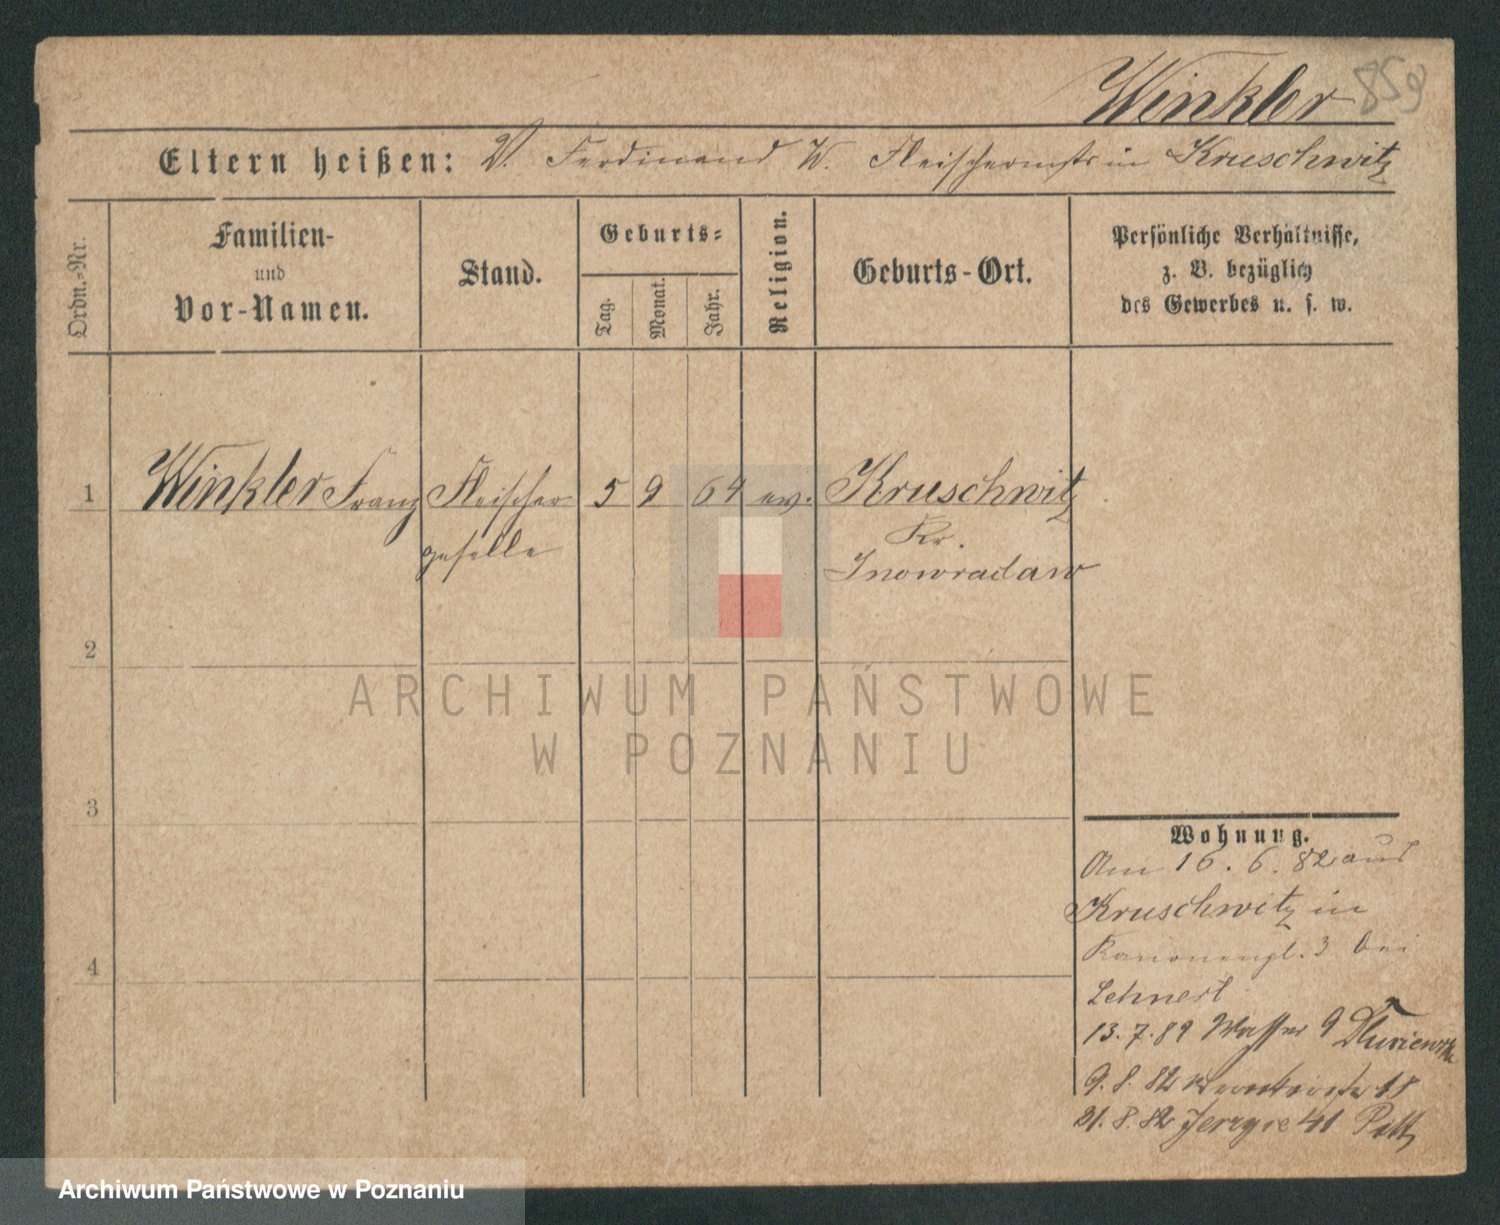 Winkler 859
Eltern heißen: V. Ferdinand W. Fleischermstr in Kruschwitz
Ordn.-Nr.
Familien-
und
Vor-Namen.
Stand.
Geburts-
Tag.
Monat.
Jahr.
Religion.
Geburts-Ort.
Persönliche Verhältnisse,
z. B. bezüglich
des Gewerbes u. s. w.
1 Winkler Franz Fleischer 5 9 64 ev. Kruschwitz
geselle Kr.
Inowraclaw
2
3
4
ARCHIWUM PAŃSTWOWE
W POZNANIU
Wohnung.
Am 16. 6. 82 aus
Kruschwitz in
Kanonenpl. 3 bei
Lehnert
13. 7. 82 Wasser 9
9. 8. 82 18
21. 8. 82 Jerzyce 41
Archiwum Państwowe w Poznaniu